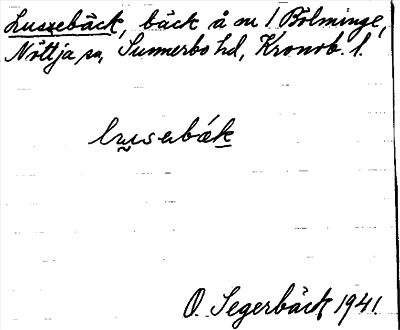 Luszebäck, bäck å nr 1 Bolminge,
Nöttja sn, Sunnerbo hd, Kronob. l.
lusebák
O. Segerbäck 1941.